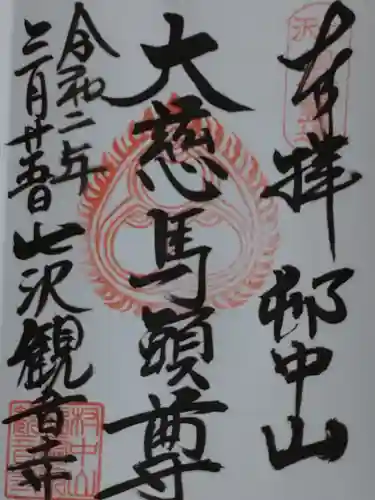 奉拝 邨中山
大慈馬頭尊
令和二年
二月廿五日 七沢観音寺